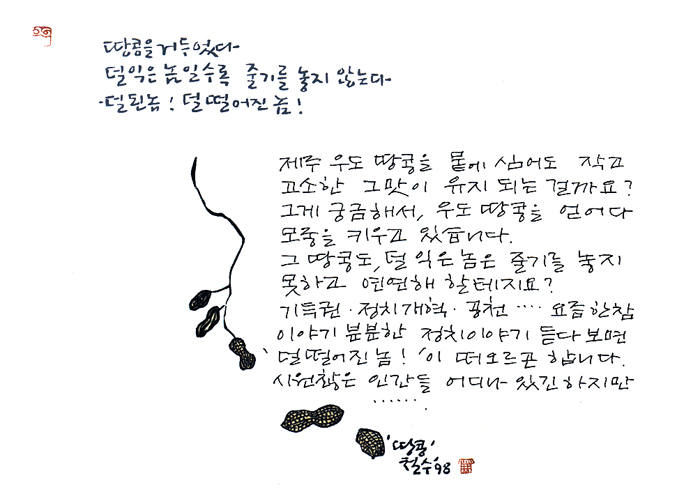 땅콩을 거두었다-
덜 익은 놈일수록 줄기를 놓지 않는다-
·덜된 놈! 덜 떨어진 놈!
제주 우도 땅콩을 뭍에 심어도 작고
고소한 그맛이 유지 되는 걸까요?
그게 궁금해서, 우도 땅콩을 얻어다
모종을 키우고 있습니다.
그 땅콩도, 덜 익은 놈은 줄기를 놓지
못하고 연연해 할테지요?
기득권·정치개혁·공천 ···· 요즘 한참
이야기 분분한 정치이야기 듣다 보면
'덜 떨어진 놈!'이 떠오르곤 합니다.
시원찮은 인간들 어디나 있긴 하지만
······.
'땅콩'
철수 '98